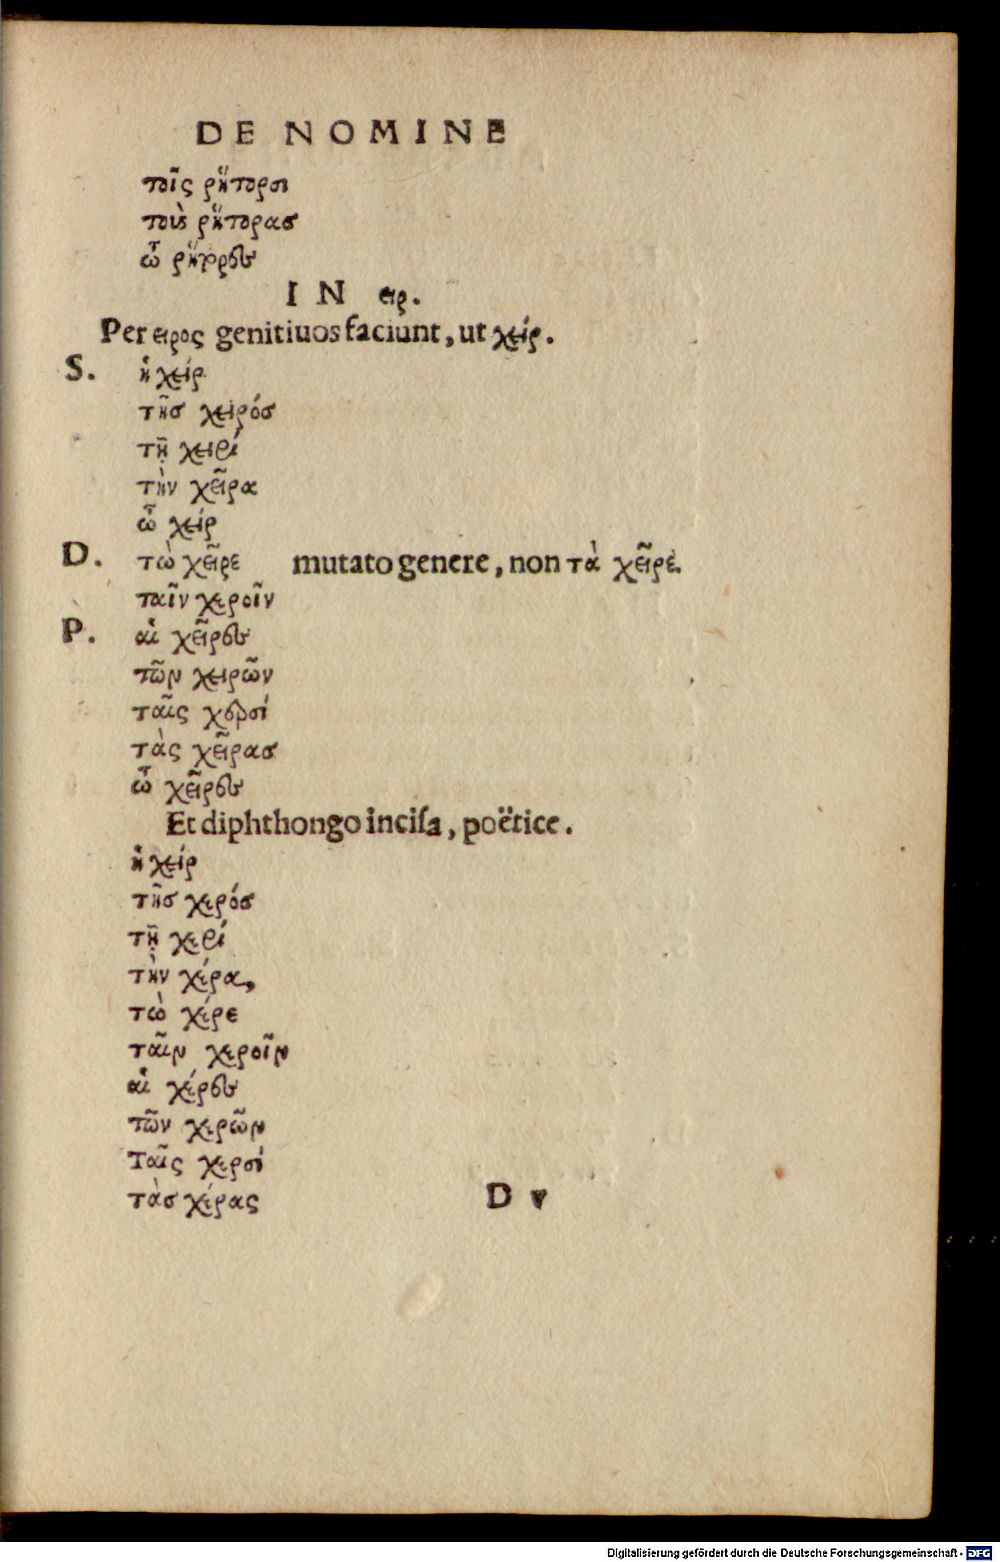 DE NOMINE
τοῖς ρήτορσι
τοὺς ρήτορας
ὦ ρήτορες
IN ειρ.
Per ειρος genitiuos faciunt, ut χείρ.
S. ἡ χείρ
τῆσ χειρόσ
τῇ χειρί
τὴν χεῖρα
ὦ χείρ
D. τὼ χεῖρε mutato genere, non τὰ χεῖρε.
ταῖν χεροῖν
P. αἱ χεῖρες
τῶν χειρῶν
ταῖς χερσί
τὰς χεῖρασ
ὦ χεῖρες
Et diphthongo inciſa, poëtice.
ἡ χείρ
τῆσ χερόσ
τῇ χερί
τὴν χέρα,
τὼ χέρε
ταῖν χεροῖν
αἱ χέρες
τῶν χερῶν
Ταῖς χερσί
τὰσ χέρας
D v
Digitalisierung gefördert durch die Deutsche Forschungsgemeinschaft - DFG